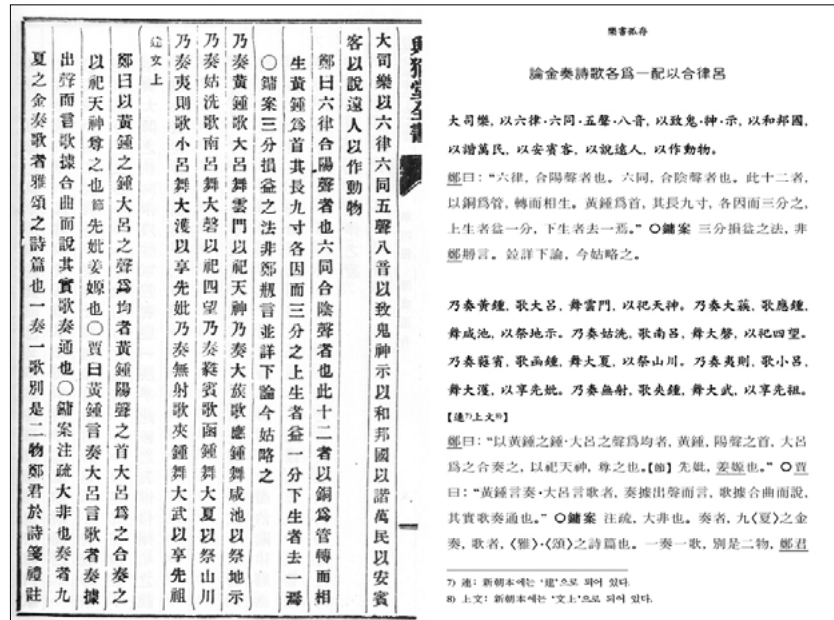 與猶堂全書
大司樂以六律六同五聲八音以致鬼神示以和邦國以諧萬民以安賓
客以說遠人以作動物
鄭曰六律合陽聲者也六同合陰聲者也此十二者以銅爲管轉而相
生黃鍾爲首其長九寸各因而三分之上生者益一分下生者去一焉
○鏞案三分損益之法非鄭剏言並詳下論今姑略之
乃奏黃鍾歌大呂舞雲門以祀天神乃奏大蔟歌應鍾舞咸池以祭地示
乃奏姑洗歌南呂舞大磬以祀四望乃奏蕤賓歌函鍾舞大夏以祭山川
乃奏夷則歌小呂舞大濩以享先妣乃奏無射歌夾鍾舞大武以享先祖
建文上
鄭曰以黃鍾之鍾大呂之聲爲均者黃鍾陽聲之首大呂爲之合奏之
以祀天神尊之也節先妣姜嫄也○賈曰黃鍾言奏大呂言歌者奏據
出聲而言歌據合曲而說其實歌奏通也○鏞案注疏大非也奏者九
夏之金奏歌者雅頌之詩篇也一奏一歌別是二物鄭君於詩箋禮註
樂書孤存
論金奏詩歌各爲一配以合律呂
大司樂, 以六律·六同·五聲·八音, 以致鬼·神·示, 以和邦國,
以諧萬民, 以安賓客, 以說遠人, 以作動物.
鄭曰: “六律, 合陽聲者也. 六同, 合陰聲者也. 此十二者,
以銅爲管, 轉而相生. 黃鍾爲首, 其長九寸, 各因而三分之,
上生者益一分, 下生者去一焉.” ○鏞案 三分損益之法, 非
鄭剏言. 竝詳下論, 今姑略之.
乃奏黃鍾, 歌大呂, 舞雲門, 以祀天神. 乃奏大蔟, 歌應鍾,
舞咸池, 以祭地示. 乃奏姑洗, 歌南呂, 舞大磬, 以祀四望.
乃奏蕤賓, 歌函鍾, 舞大夏, 以祭山川. 乃奏夷則, 歌小呂,
舞大濩, 以享先妣. 乃奏無射, 歌夾鍾, 舞大武, 以享先祖.
【連7)上文8)】
鄭曰: “以黃鍾之鍾·大呂之聲爲均者, 黃鍾, 陽聲之首, 大呂
爲之合奏之, 以祀天神, 尊之也.【節】 先妣, 姜嫄也.” ○賈
曰: “黃鍾言奏·大呂言歌者, 奏據出聲而言, 歌據合曲而說,
其實歌奏通也.” ○鏞案 注疏, 大非也. 奏者, 九〈夏〉之金
奏, 歌者, 〈雅〉·〈頌〉之詩篇也. 一奏一歌, 別是二物, 鄭君
7) 連: 新朝本에는 ‘建’으로 되어 있다.
8) 上文: 新朝本에는 ‘文上’으로 되어 있다.